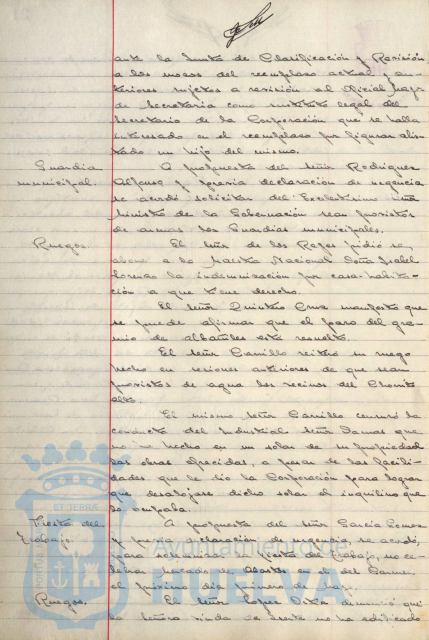 ante la Junta de Clasificación y Revisión
a los mozos del reemplazo actual y an-
teriores sujetos a revisión al Oficial mayor
de Secretaría como sustituto legal del
Secretario de la Corporación que se halla
interesado en el reemplazo por figurar alis-
tado un hijo del mismo.
Guardia
municipal.
A propuesta del señor Rodríguez
Alfonso y previa declaración de urgencia
se acordó solicitar del Excelentísimo señor
Ministro de la Gobernación sean provistos
de armas los Guardias municipales.
Ruegos.
El señor de los Reyes pidió se
abone a la Maestra Nacional Doña Isabel
Lorenzo la indemnización por casa-habita-
ción a que tiene derecho.
El señor Quintero Cruz manifestó que
se puede afirmar que el paro del gre-
mio de albañiles está resuelto.
El señor Carrillo reiteró su ruego
hecho en sesiones anteriores de que sean
provistos de agua los vecinos del
alto.
El mismo señor Carrillo censuró la
conducta del Industrial señor Damas que
no ha hecho en un solar de su propiedad
las obras ofrecidas, a pesar de las facili-
dades que le dió la Corporación para lograr
que desalojase dicho solar el inquilino que
lo ocupaba.
Fiesta del
Trabajo.
A propuesta del señor García Gómez
y previa declaración de urgencia, se acordó,
para solemnizar la Fiesta del Trabajo, no ce-
lebrar mercado de Abastos en el del Carmen
el próximo día primero de mayo.
Ruegos.
El señor López denunció que
la señora viuda de no ha edificado
ET TERRÆ
Ayuntamiento de
HUELVA